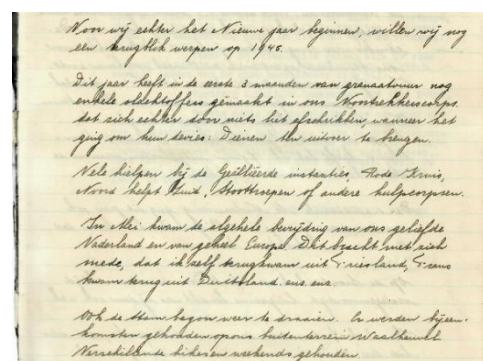 Voor wij echter het Nieuwe jaar beginnen, willen wij nog
een terugblik werpen op 1945.
Dit jaar heeft in de eerste 3 maanden van granaatvuur nog
enkele slachtoffers gemaakt in ons Voortrekkerscorps.
dat zich echter door niets liet afschrikken, wanneer het
ging om hun devies: Dienen ten uitvoer te brengen.
Vele hielpen bij de Geällieerde instanties, Rode Kruis,
Noord helpt Zuid, Stoottroepen of andere hulpcorpsen.
In Mei kwam de algehele bevrijding van ons geliefde
Vaderland en van geheel Europa. Dit bracht met zich
mede, dat ik zelf terugkwam uit Friesland, Frans
kwam terug uit Duitsland. enz. enz.
Ook de stam begon weer te draaien. Er werden bijeen-
komsten gehouden op ons buitenterrein
Verschillende hikes en weekends gehouden.